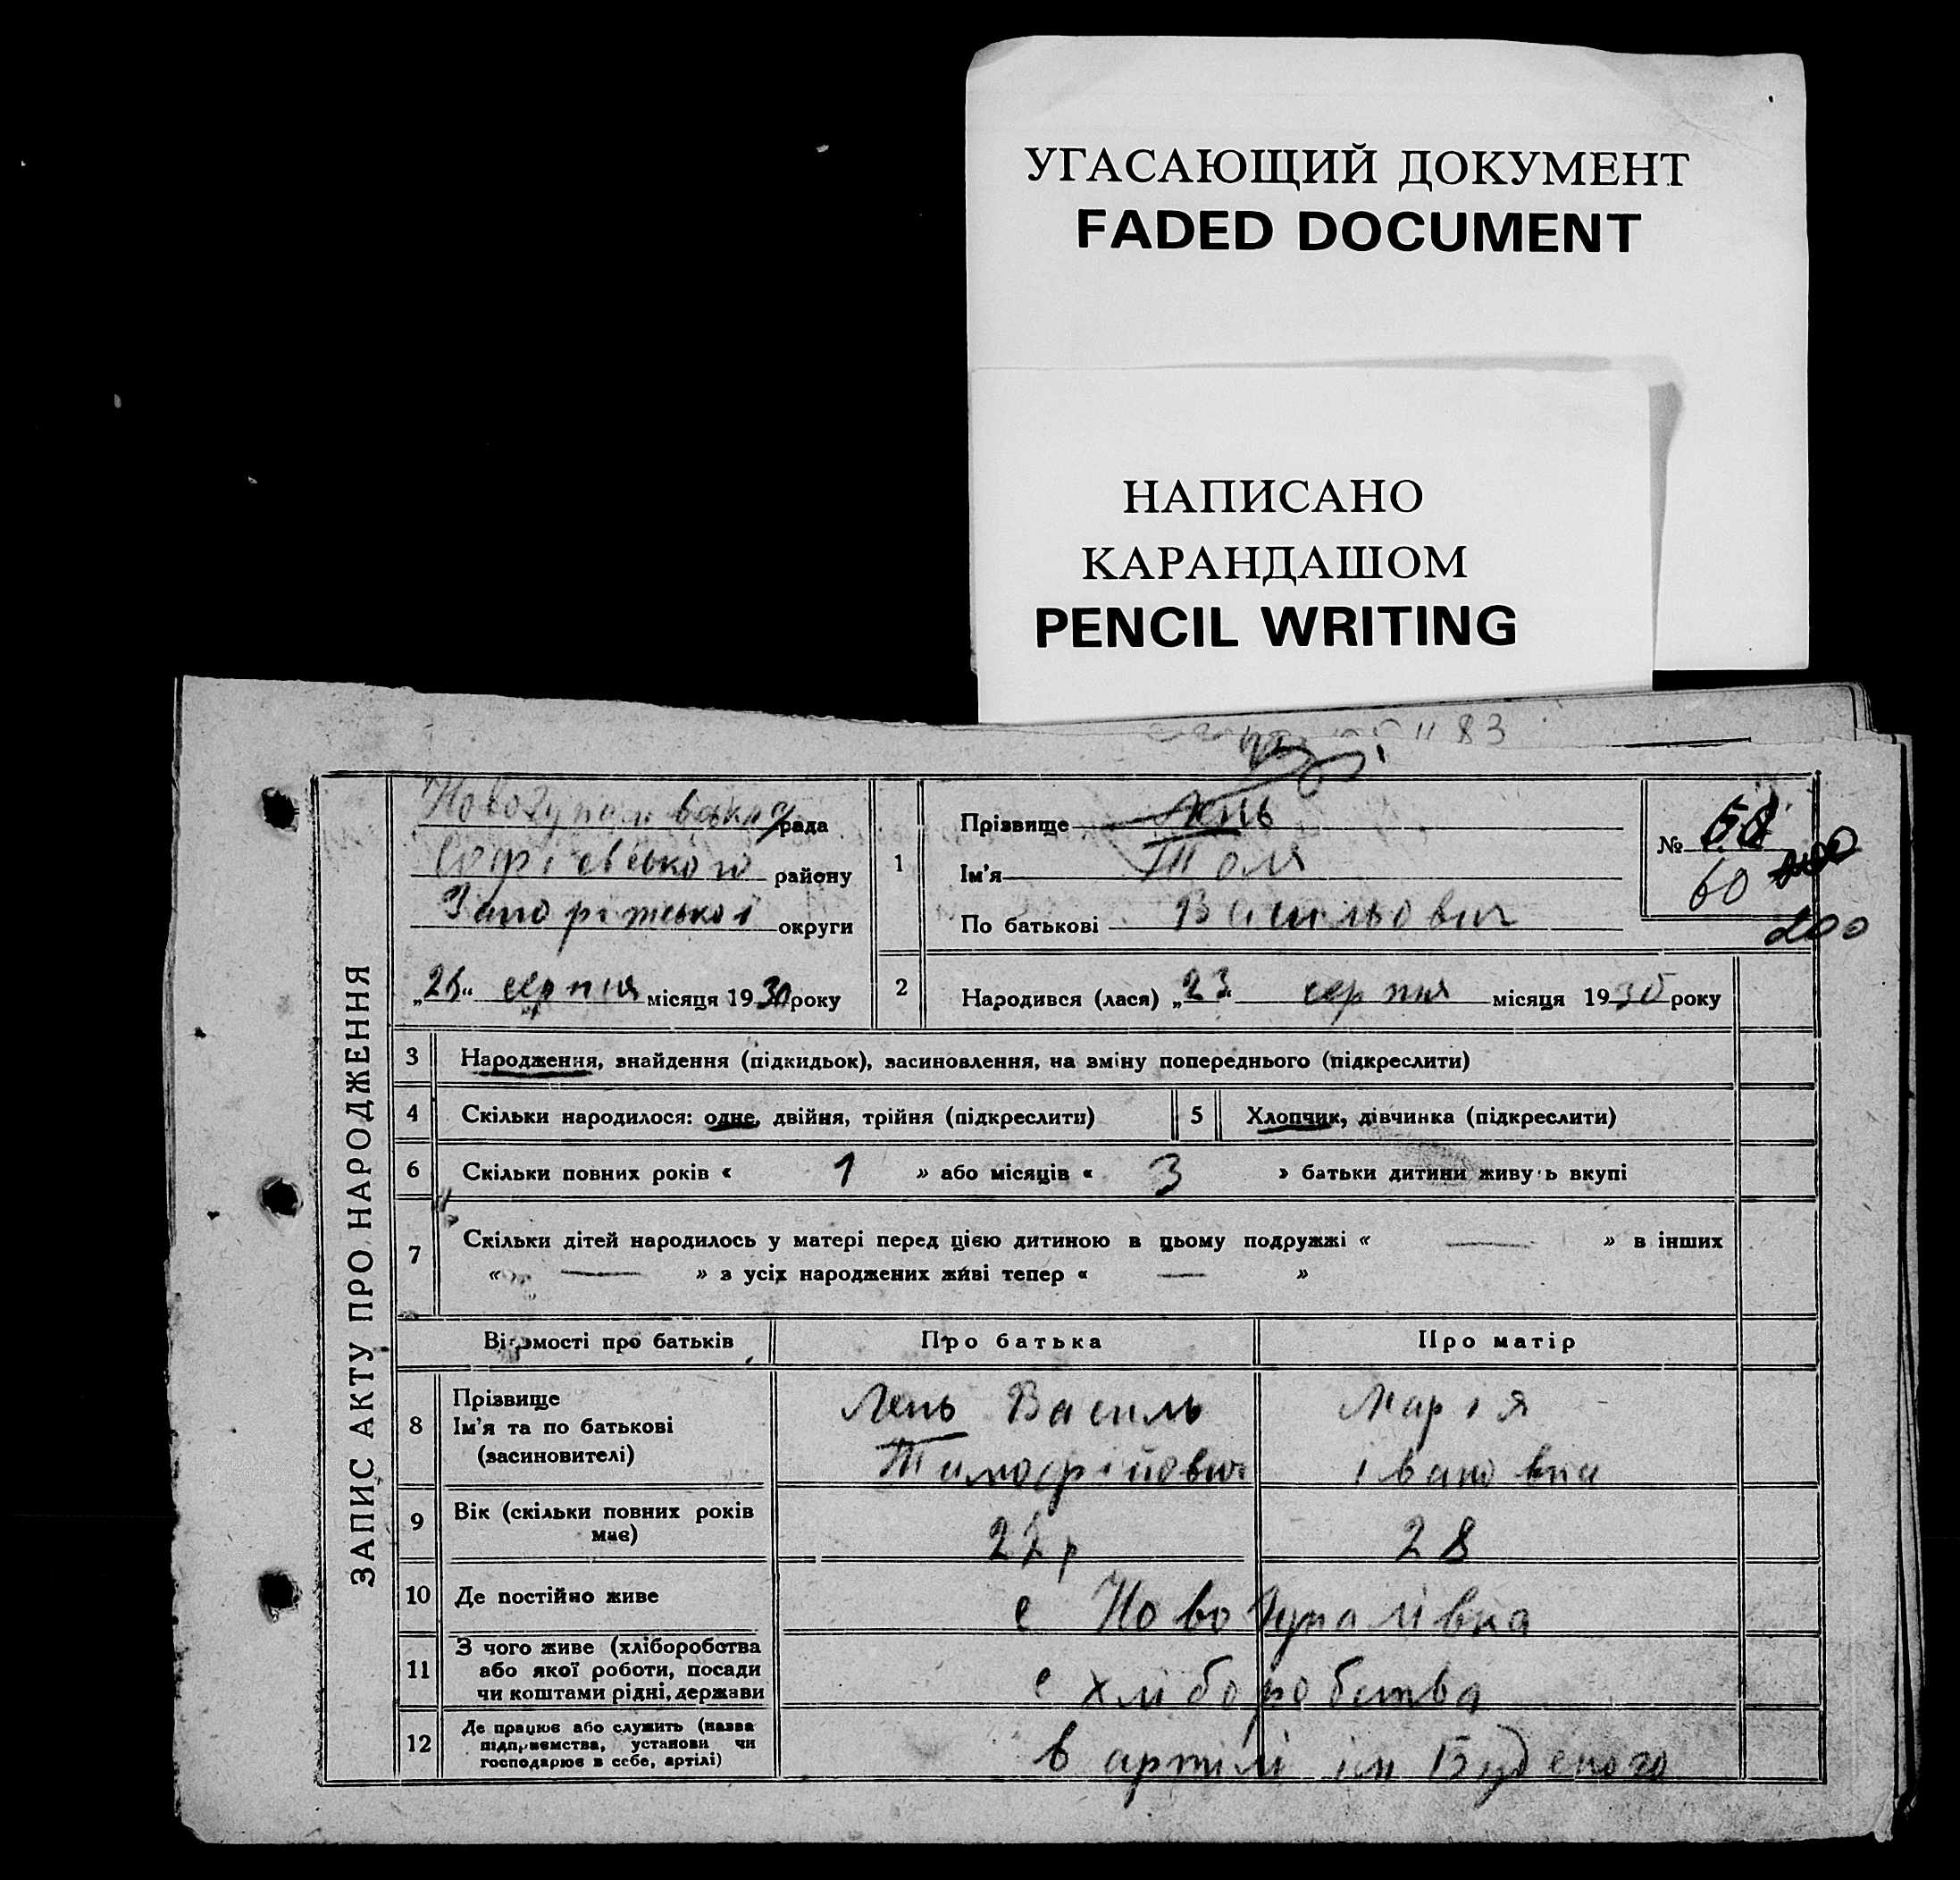 УГАСАЮЩИЙ ДОКУМЕНТ
FADED DOCUMENT
НАПИСАНО
КАРАНДАШОМ
PENCIL WRITING
83
ЗАПИС АКТУ ПРО НАРОДЖЕННЯ
рада
Софіевського району
Запоріжської округи
„26“ серпня місяця 1930 року
1
Прізвище Лень
Ім'я Толя
По батькові Васильович
№
60
200
2
Народився (лася) „23“ серпня місяця 1930 року
3 Народження, знайдення (підкидьок), засиновлення, на зміну попереднього (підкреслити)
4 Скільки народилося: одне, двійня, трійня (підкреслити)
5 Хлопчик, дівчинка (підкреслити)
6 Скільки повних років « 1 » або місяців « 3 » батьки дитини живуть вкупі
7 Скільки дітей народилось у матері перед цією дитиною в цьому подружжі « — » в інших
« — » з усіх народжених живі тепер « — »
Відомості про батьків Про батька Про матір
8 Прізвище
Ім'я та по батькові
(засиновителі)
Лень Василь
Тимофійович
Марія
Івановна
9 Вік (скільки повних років
має)
22 р
28
10 Де постійно живе
с Новогупалівка
11 З чого живе (хлібороботва
або якої роботи, посади
чи коштами рідні, держави
с хліборобства
12 Де працює або служить (назва
підприємства, установи чи
господарює в себе, артілі)
в артілі ім Буденого